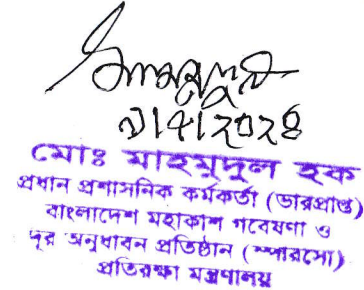 মোঃ মাহমুদুল হক
প্রধান প্রশাসনিক কর্মকর্তা (ভারপ্রাপ্ত)
বাংলাদেশ মহাকাশ গবেষণা ও
দূর অনুধাবন প্রতিষ্ঠান (স্পারসো)
প্রতিরক্ষা মন্ত্রণালয়